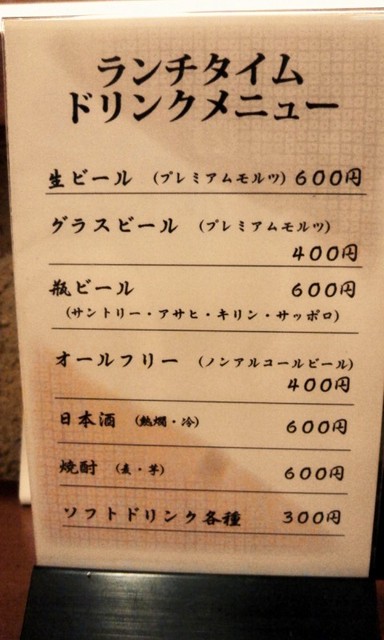 ランチタイム
ドリンクメニュー
生ビール (プレミアムモルツ) 600円
グラスビール (プレミアムモルツ)
400円
瓶ビール 600円
(サントリー・アサヒ・キリン・サッポロ)
オールフリー (ノンアルコールビール)
400円
日本酒 (熱燗・冷) 600円
焼酎 (麦・芋) 600円
ソフトドリンク各種 300円